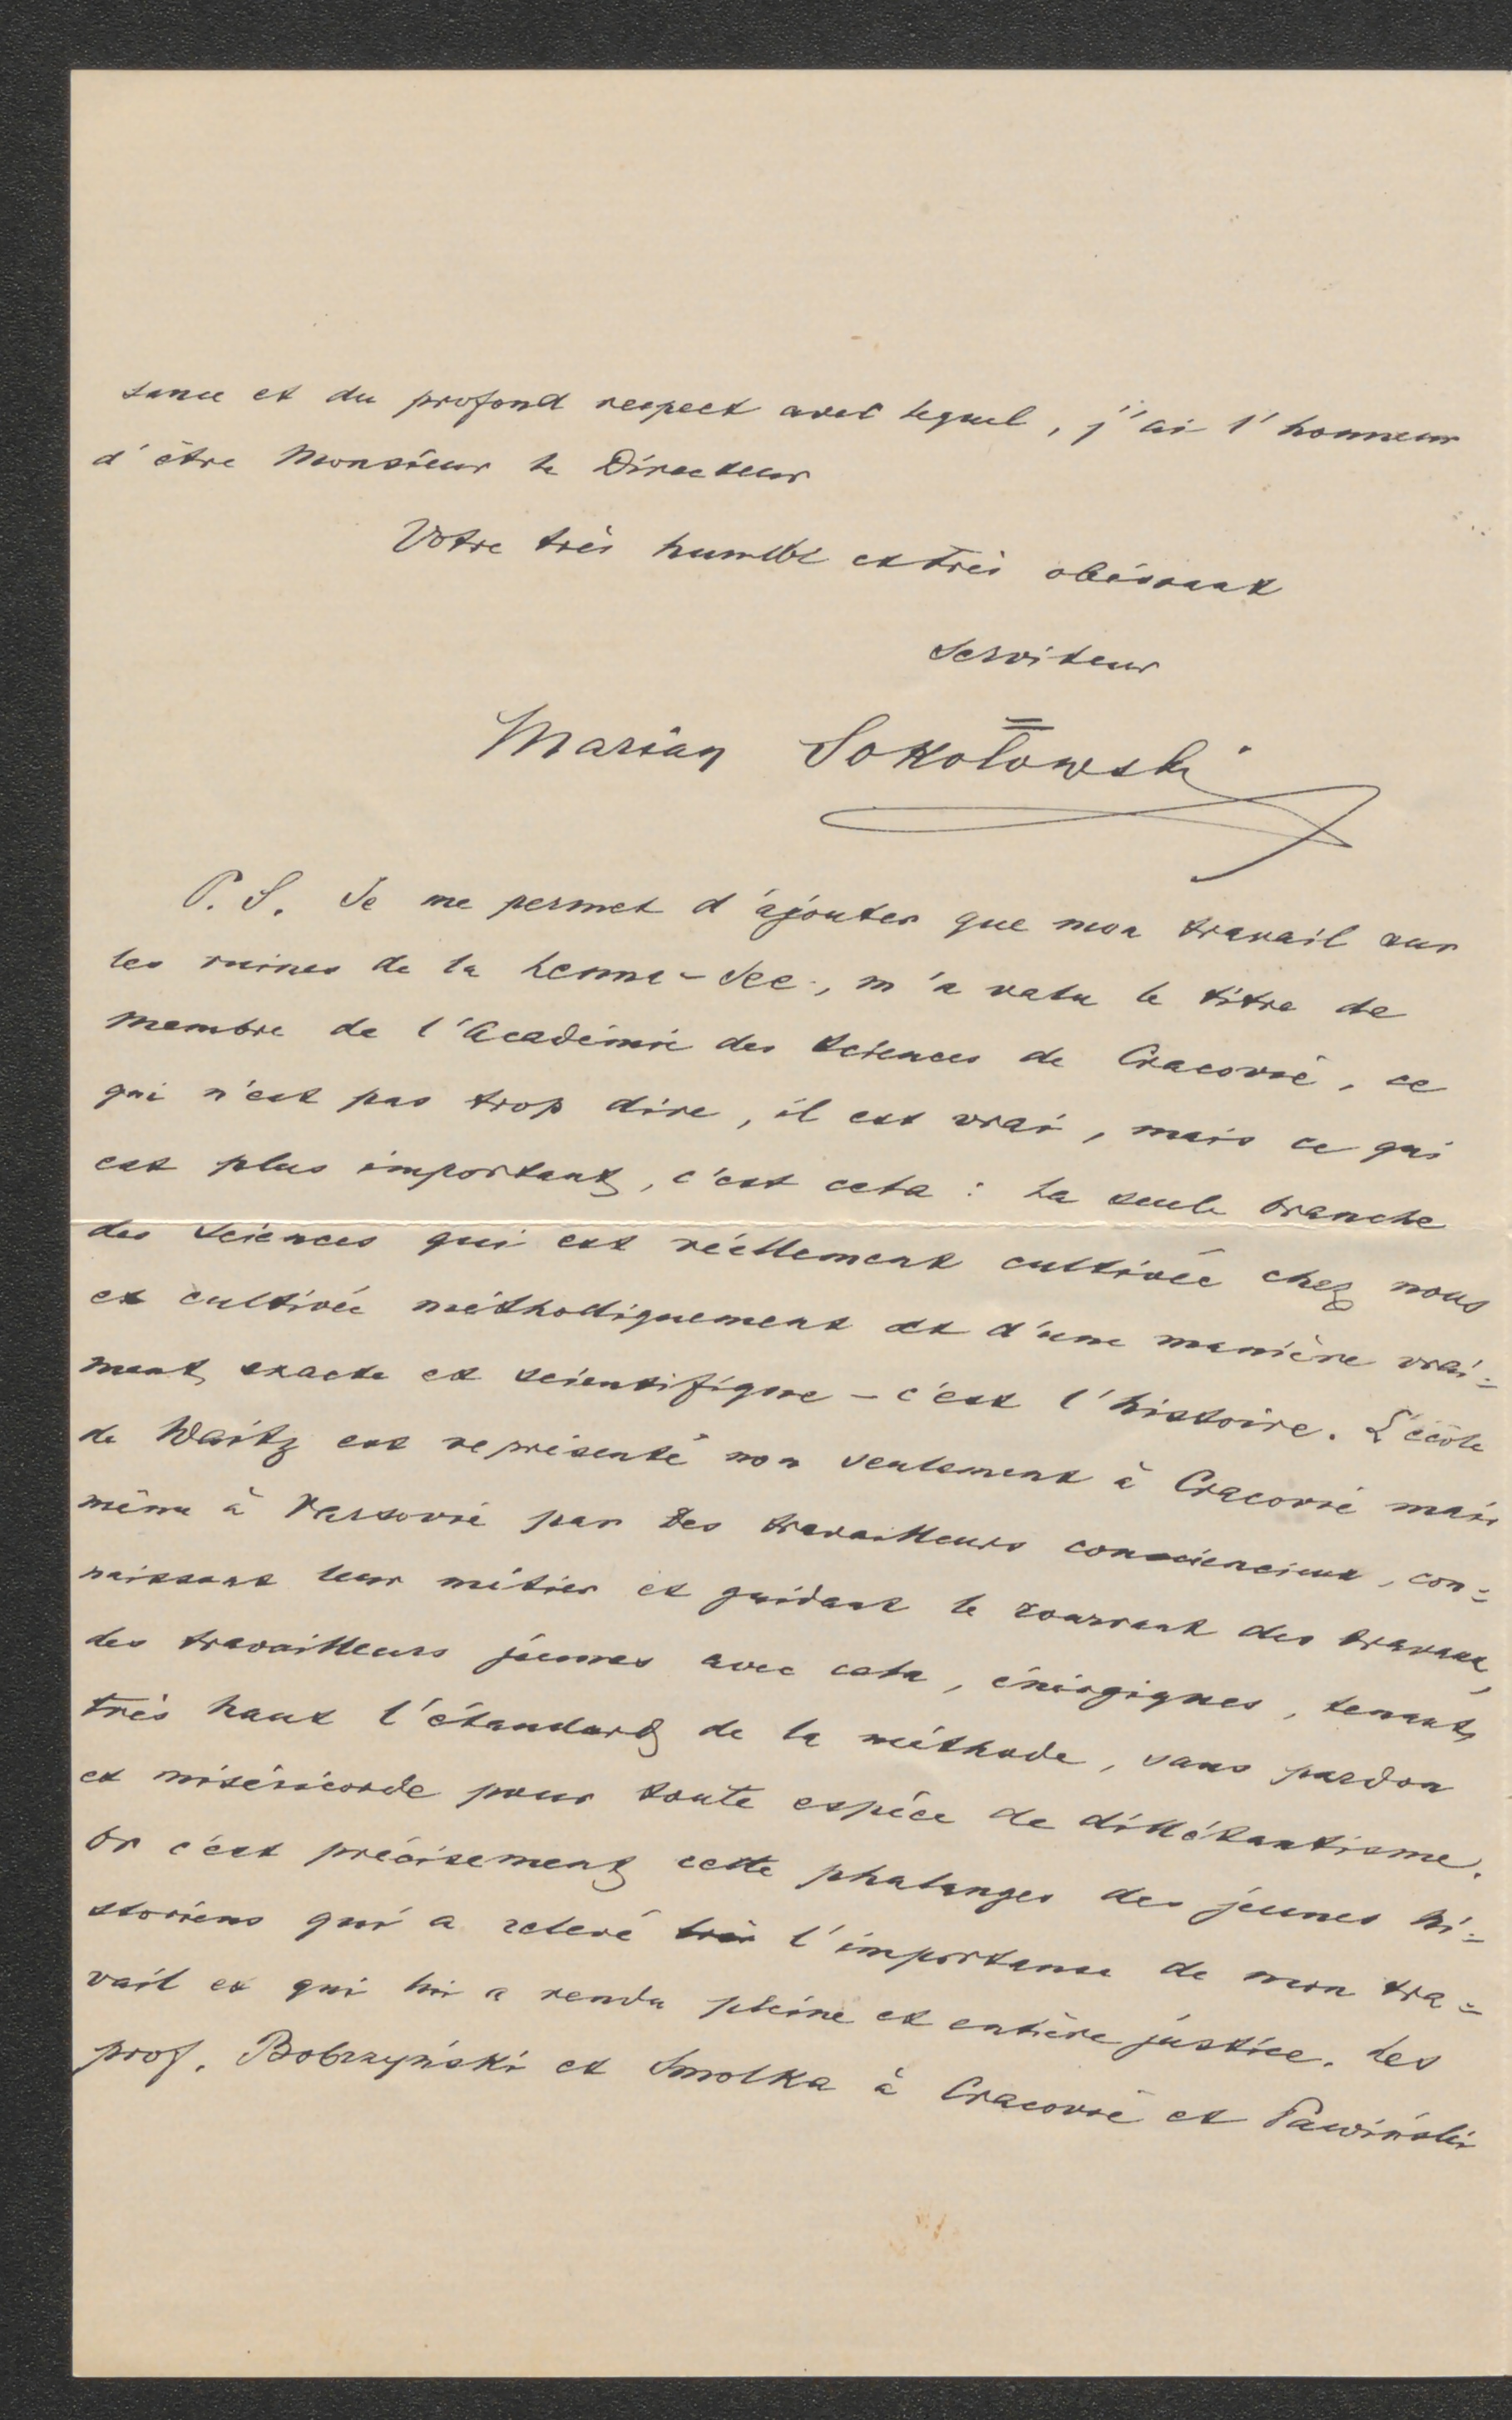 sance et du profond respect avec lequel, j'ai l'honneur
d'être Monsieur le Directeur
Votre très humble et très obéissant
Serviteur
Marian Sokołowski
P. S. Je me permet d'ajouter que mon travail sur
les ruines de la Lenna-See, m'a valu le titre de
membre de l'Académie des Sciences de Cracovie, ce
qui n'est pas trop dire, il est vrai, mais ce qui
est plus important, c'est cela : La seule branche
des sciences qui est réellement cultivée chez nous
et cultivée méthodiquement et d'une manière vrai=
ment exacte et scientifique – c'est l'histoire. L'école
de Waitz est représenté non seulement à Cracovie mais
même à Varsovie par des travailleurs consciencieux, con=
naissant leur métier et guidant le courrant des travaux,
des travailleurs jeunes avec cela, énérgiques, tenant
très haut l'étandard de la méthode, sans pardon
et miséricorde pour toute espèce de dillétantisme.
Or c'est précisement cette phalanges des jeunes hi=
storiens qui a relevé l'importance de mon tra=
vail et qui lui a rendu pleine et entière justice. Les
prof. Bobrzyński et Smolka à Cracovie et Pawiński